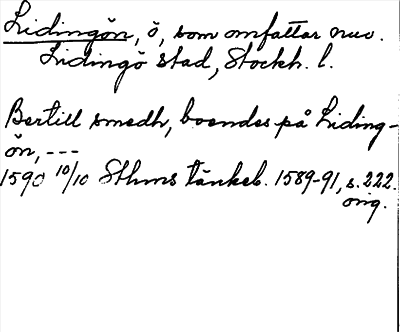 Lidingön, ö, som omfattar nuv.
Lidingö stad, Stockh. l.
Bertill smedh, boendes på Liding-
ön, ---
1590 10/10 Sthms tänkeb. 1589-91, s. 222.
orig.